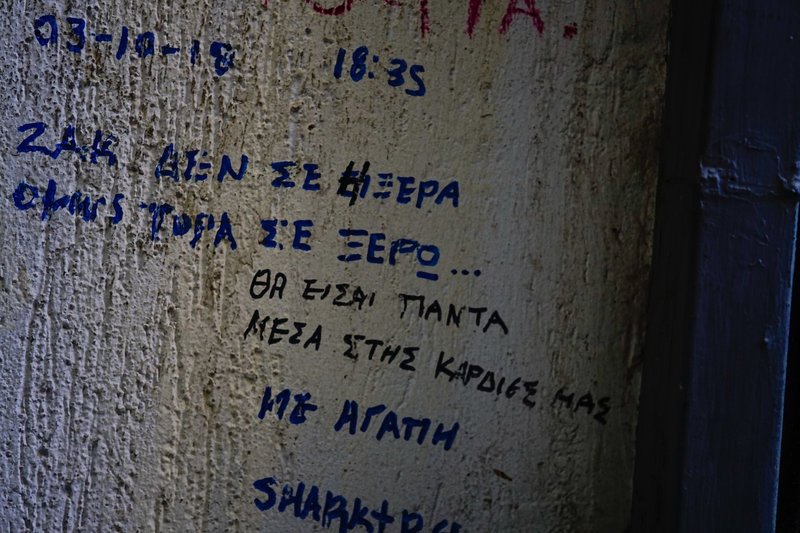 03-10-18 18:35
ΖΑΚ ΔΕΝ ΣΕ ΗΞΕΡΑ
ΟΜΩΣ ΤΩΡΑ ΣΕ ΞΕΡΩ...
ΘΑ ΕΙΣΑΙ ΠΑΝΤΑ
ΜΕΣΑ ΣΤΗΣ ΚΑΡΔΙΕΣ ΜΑΣ
ΜΕ ΑΓΑΠΗ